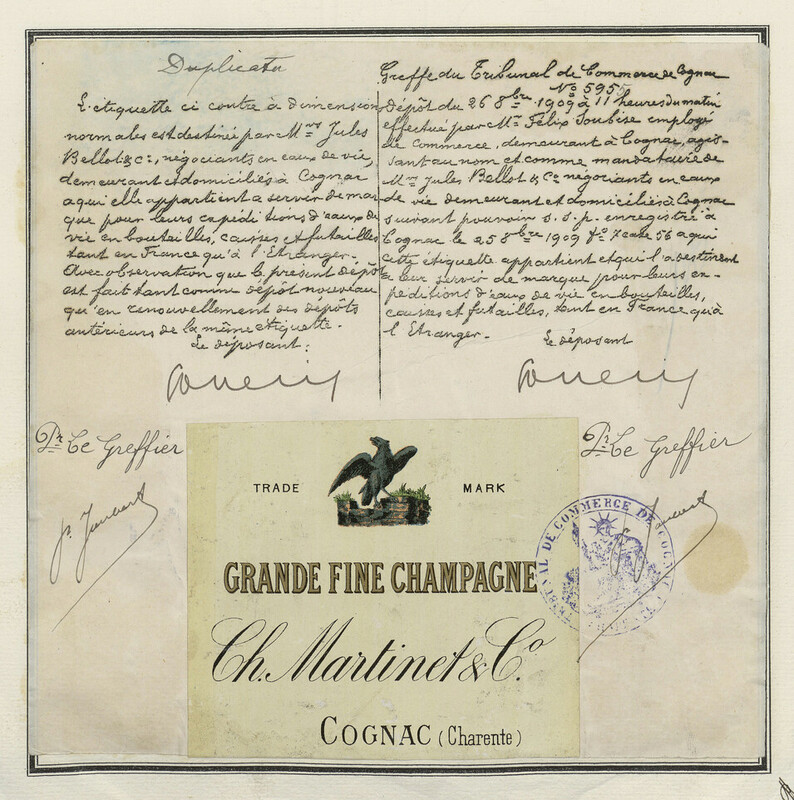 Duplicata
L'étiquette ci contre à dimensions
normales est destinée par M.rs Jules
Bellot & Cie, négociants en eaux de vie,
demeurant et domiciliés à Cognac
a qui elle appartient a servir de mar
que pour leurs expéditions d'eaux de
vie en bouteilles, caisses et futailles
tant en France qu'à l'Etranger.
Avec observation que le présent dépôt
est fait tant comme dépôt nouveau
qu'en renouvellement des dépôts
antérieurs de la même étiquette.
Le déposant:
Greffe du Tribunal de Commerce de Cognac
No 5955
Dépôt du 26 8bre 1909 à 11 heures du matin
effectué par Mr Félix Soubise employé
de Commerce, demeurant à Cognac, agis-
sant au nom et comme mandataire de
M.rs Jules Bellot & Co négociants en eaux
de vie demeurant et domiciliés à Cognac
suivant pouvoir s.s.p. enregistré à
Cognac le 25 8bre 1909 fo 7 case 56 a qui
cette étiquette appartient et qui l'a destinent
a leur servir de marque pour leurs ex-
péditions d'eaux de vie en bouteilles,
caisses et futailles, tant en France qu'à
l'Etranger.
Le déposant
Pr Le Greffier
Pr Le Greffier
TRADE MARK
GRANDE FINE CHAMPAGNE
Ch. Martinet & Co.
COGNAC (Charente)
TRIBUNAL DE COMMERCE DE COGNAC